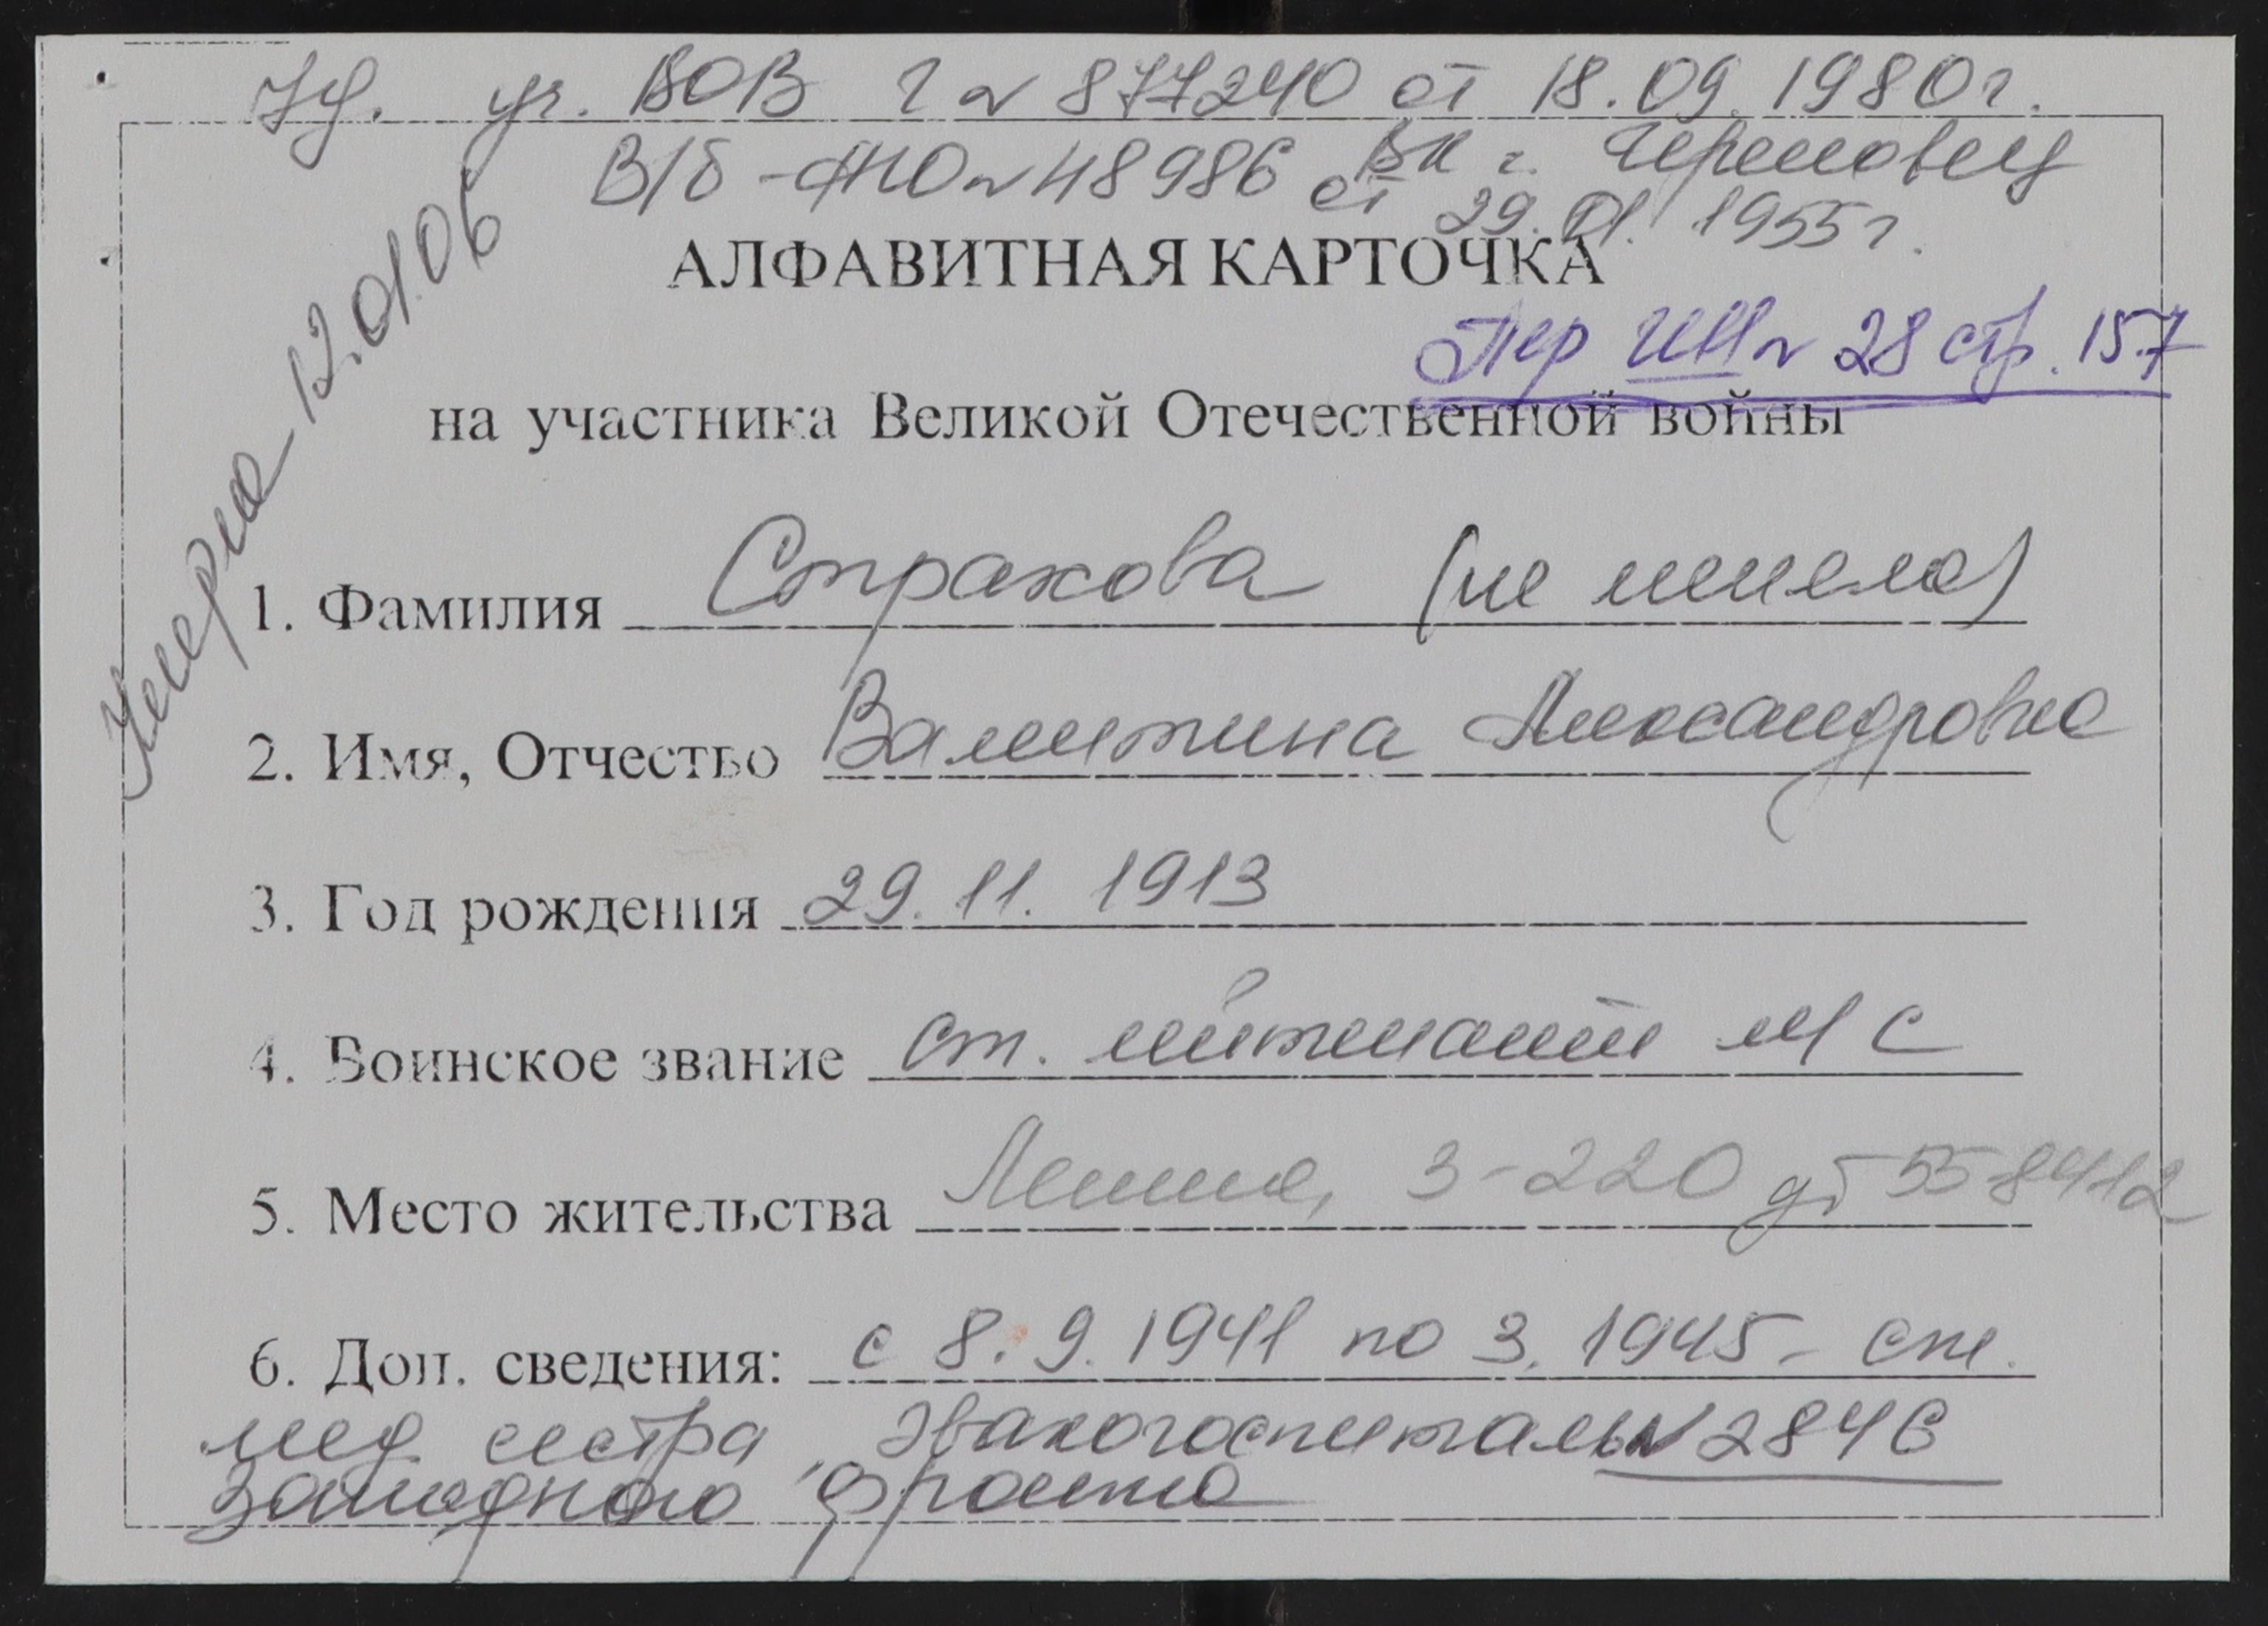 Уд. уч. ВОВ Г № 877240 от 18.09.1980г.
ВК г. Череповец
В/б - ФЮ № 48986 от 29.01.1955г.
Умерла 12.01.06
АЛФАВИТНАЯ КАРТОЧКА
Пер № 28 стр. 157
на участника Великой Отечественной войны
1. Фамилия Страхова (не меняла)
2. Имя, Отчество Валентина Александровна
3. Год рождения 29.11.1913
4. Воинское звание ст. лейтенант м/с
5. Место жительства Ленина, 3-220 дт 558412
6. Доп. сведения: с 8.9.1941 по 3.1945 - ст.
мед сестра, эвакогоспиталь № 2846
Западного фронта